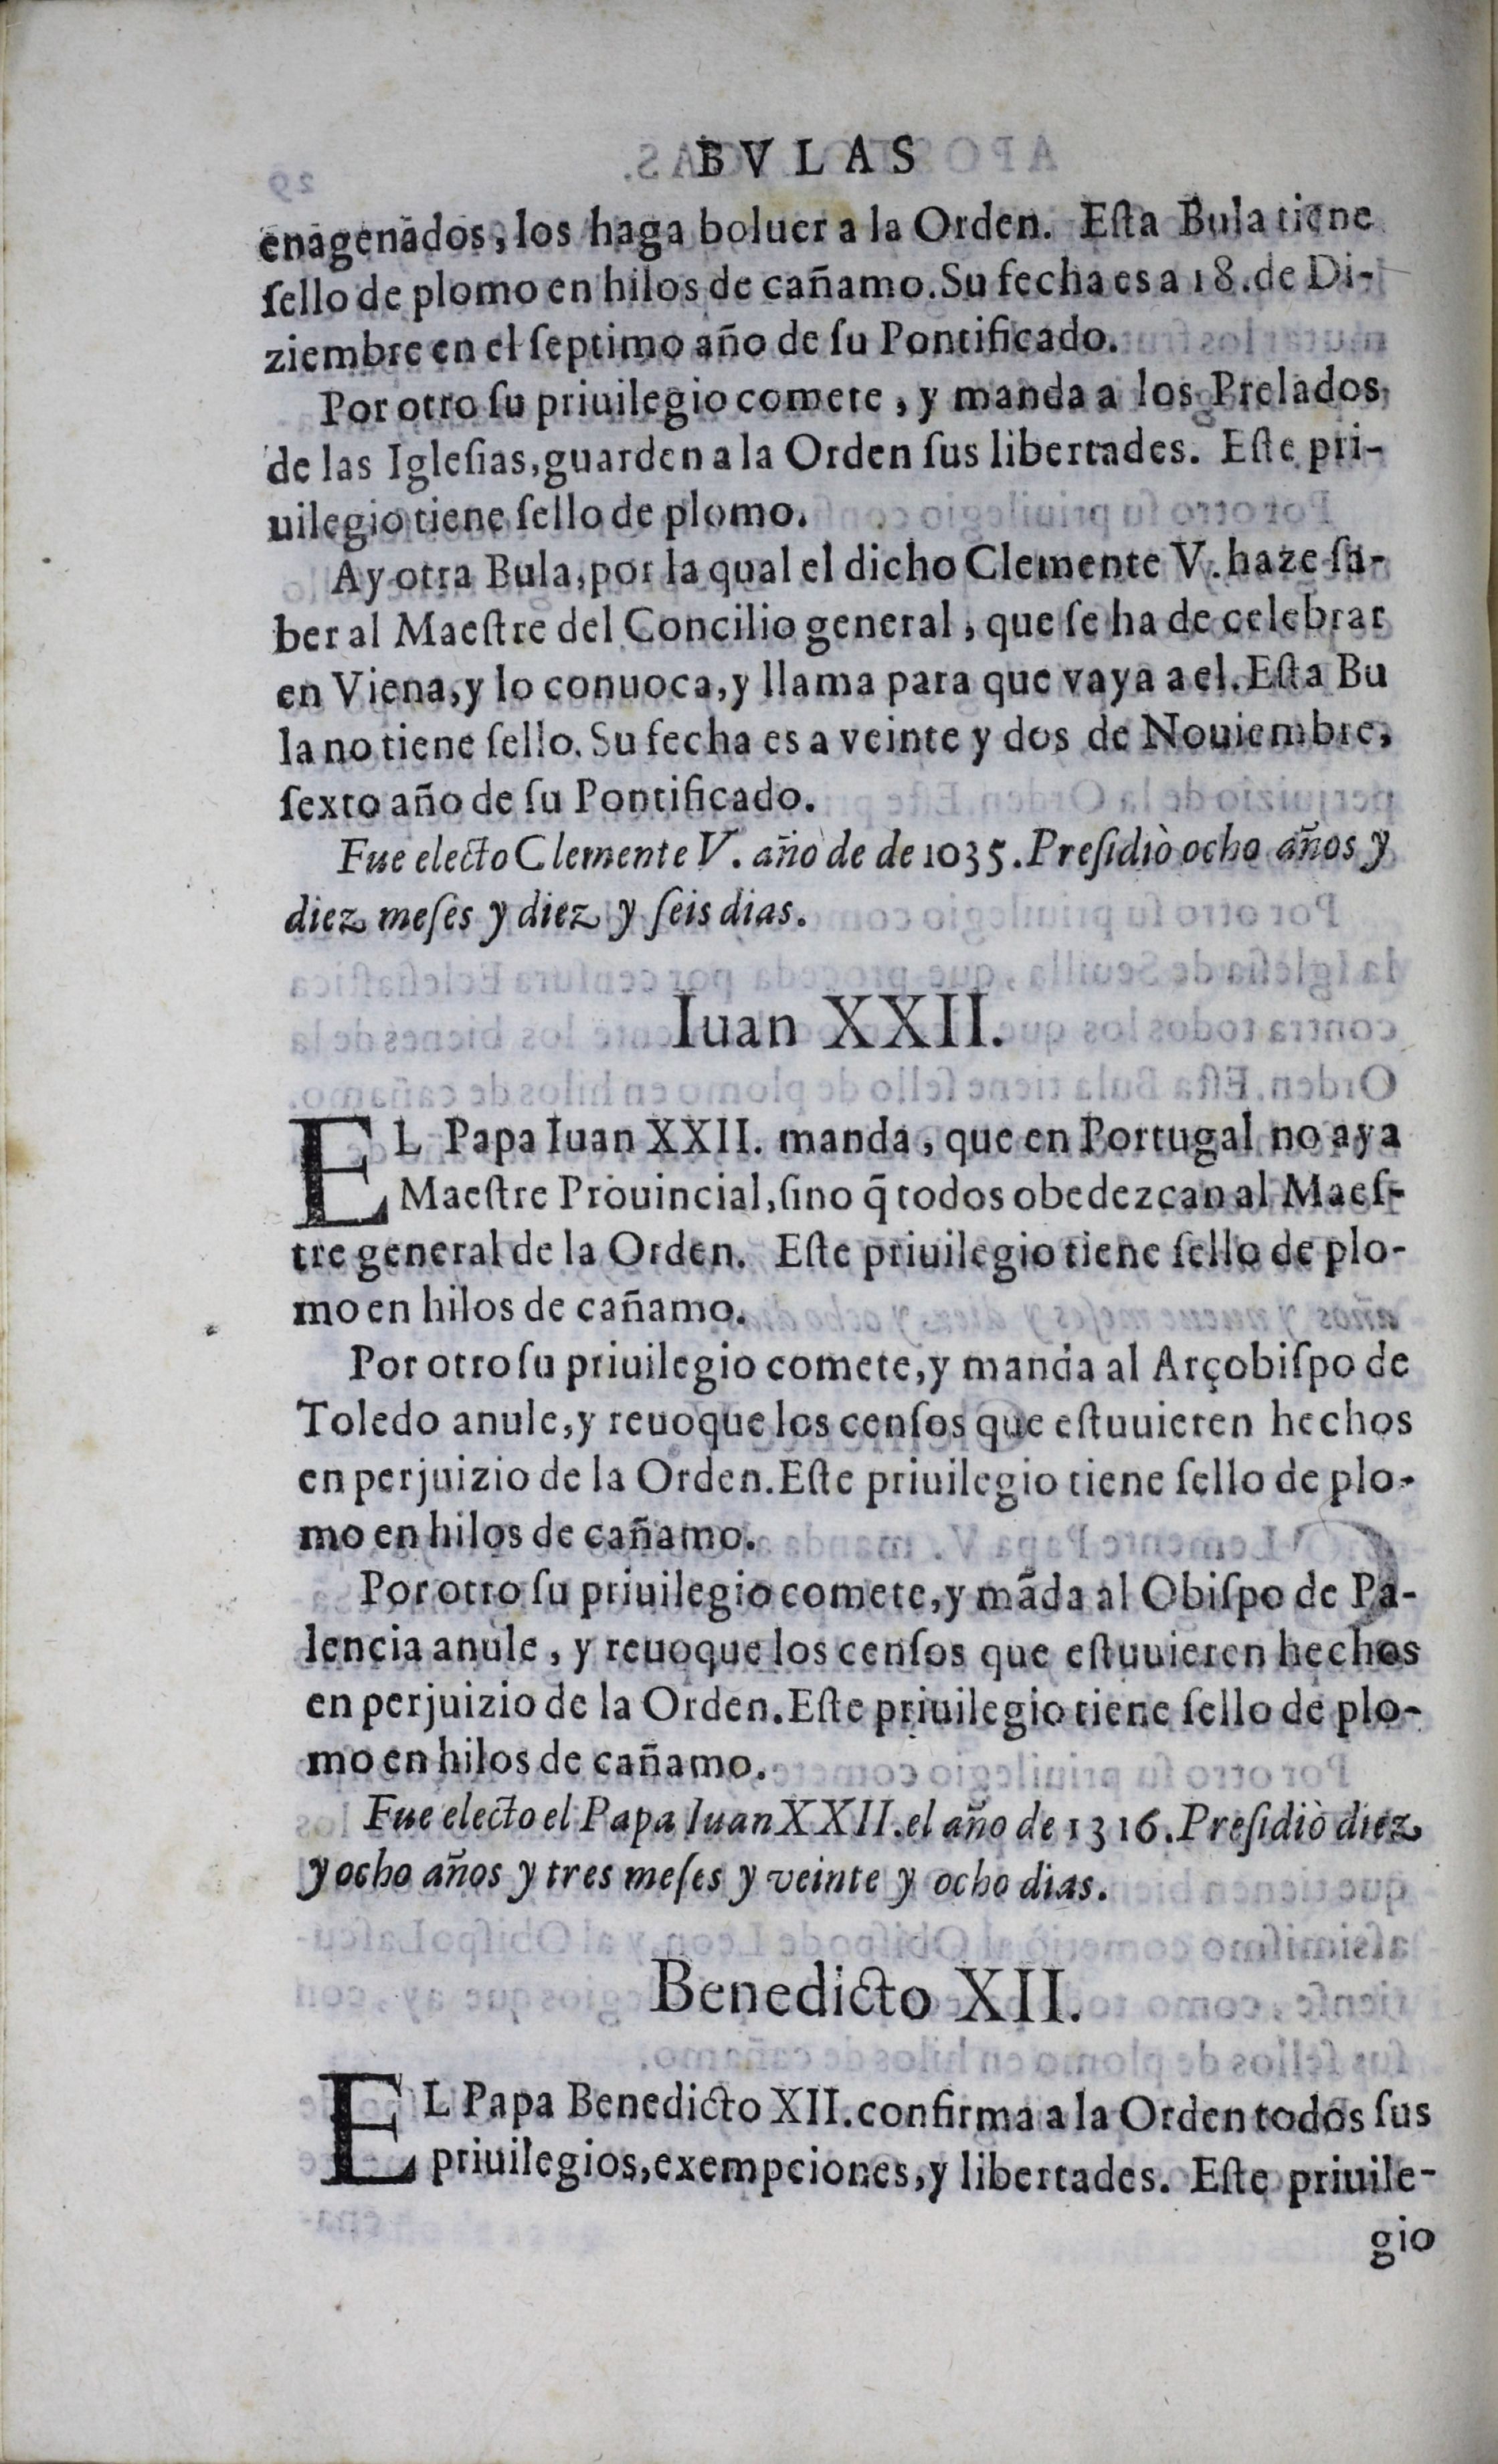 BVLAS
enagenados, los haga boluer a la Orden. Eſta Bula tiene
ſello de plomo en hilos de cañamo. Su fecha es a 18. de Di-
ziembre en el ſeptimo año de ſu Pontificado.
Por otro ſu priuilegio comete, y manda a los Prelados
de las Igleſias, guarden a la Orden ſus libertades. Eſte pri-
uilegio tiene ſello de plomo.
Ay otra Bula, por la qual el dicho Clemente V. haze ſa-
ber al Maeſtre del Concilio general, que ſe ha de celebrar
en Viena, y lo conuoca, y llama para que vaya a el. Eſta Bu
la no tiene ſello. Su fecha es a veinte y dos de Nouiembre,
ſexto año de ſu Pontificado.
Fue electo Clemente V. año de de 1035. Preſidiò ocho años y
diez meſes y diez y ſeis dias.
Iuan XXII.
EL Papa Iuan XXII. manda, que en Portugal no aya
Maeſtre Prouincial, ſino q̃ todos obedezcan al Maeſ-
tre general de la Orden. Eſte priuilegio tiene ſello de plo-
mo en hilos de cañamo.
Por otro ſu priuilegio comete, y manda al Arçobiſpo de
Toledo anule, y reuoque los cenſos que eſtuuieren hechos
en perjuizio de la Orden. Eſte priuilegio tiene ſello de plo-
mo en hilos de cañamo.
Por otro ſu priuilegio comete, y mãda al Obiſpo de Pa-
lencia anule, y reuoque los cenſos que eſtuuieren hechos
en perjuizio de la Orden. Eſte priuilegio tiene ſello de plo-
mo en hilos de cañamo.
Fue electo el Papa Iuan XXII. el año de 1316. Preſidiò diez
y ocho años y tres meſes y veinte y ocho dias.
Benedicto XII.
EL Papa Benedicto XII. confirma a la Orden todos ſus
priuilegios, exempciones, y libertades. Eſte priuile-
gio